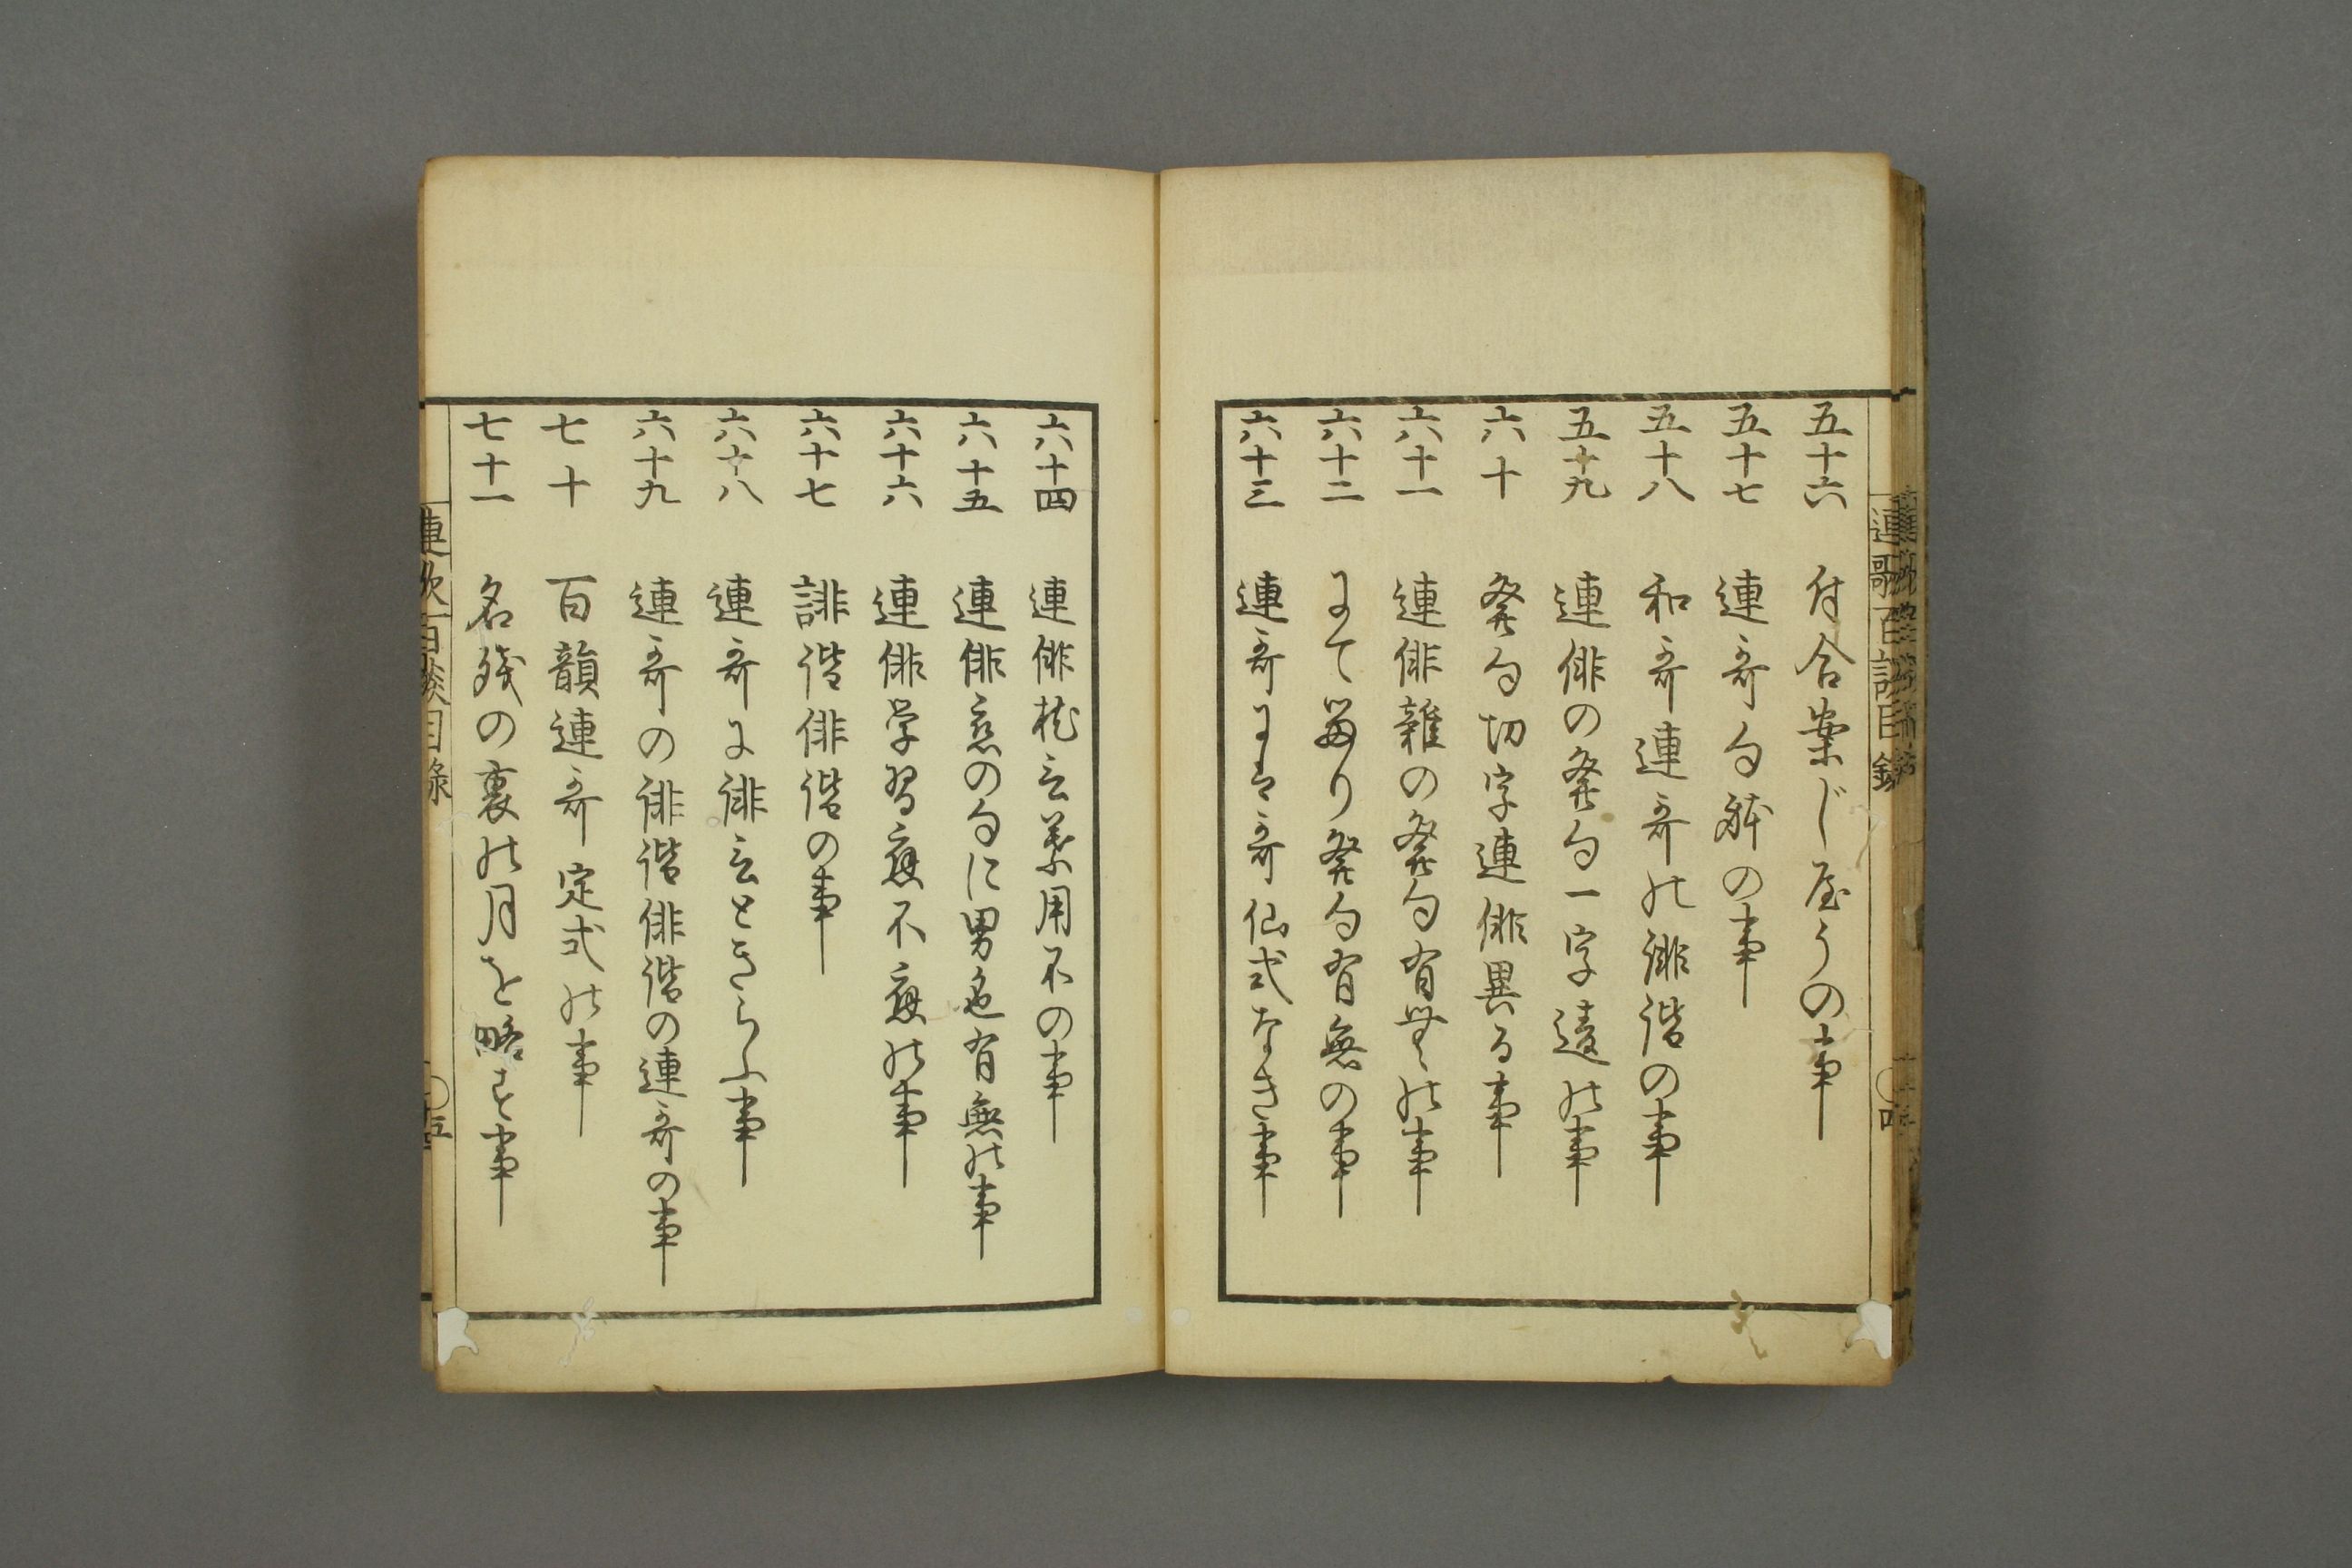 五十六 付合案じ屋うの事
五十七 連哥句躰の事
五十八 和哥連哥の誹諧の事
五十九 連俳の発句一字違の事
六十 発句切字連俳異る事
六十一 連俳雑の発句有無の事
六十二 にて留り発句有無の事
六十三 連哥には哥仙式なき事
六十四 連俳花言葉用不の事
六十五 連俳恋の句に男色有無の事
六十六 連俳学習応不応の事
六十七 誹諧俳諧の事
六十八 連哥に誹言ときらふ事
六十九 連哥の誹諧俳諧の連哥の事
七十 百韻連哥定式の事
七十一 名残の裏の月を略す事
連歌百談目録
四
五